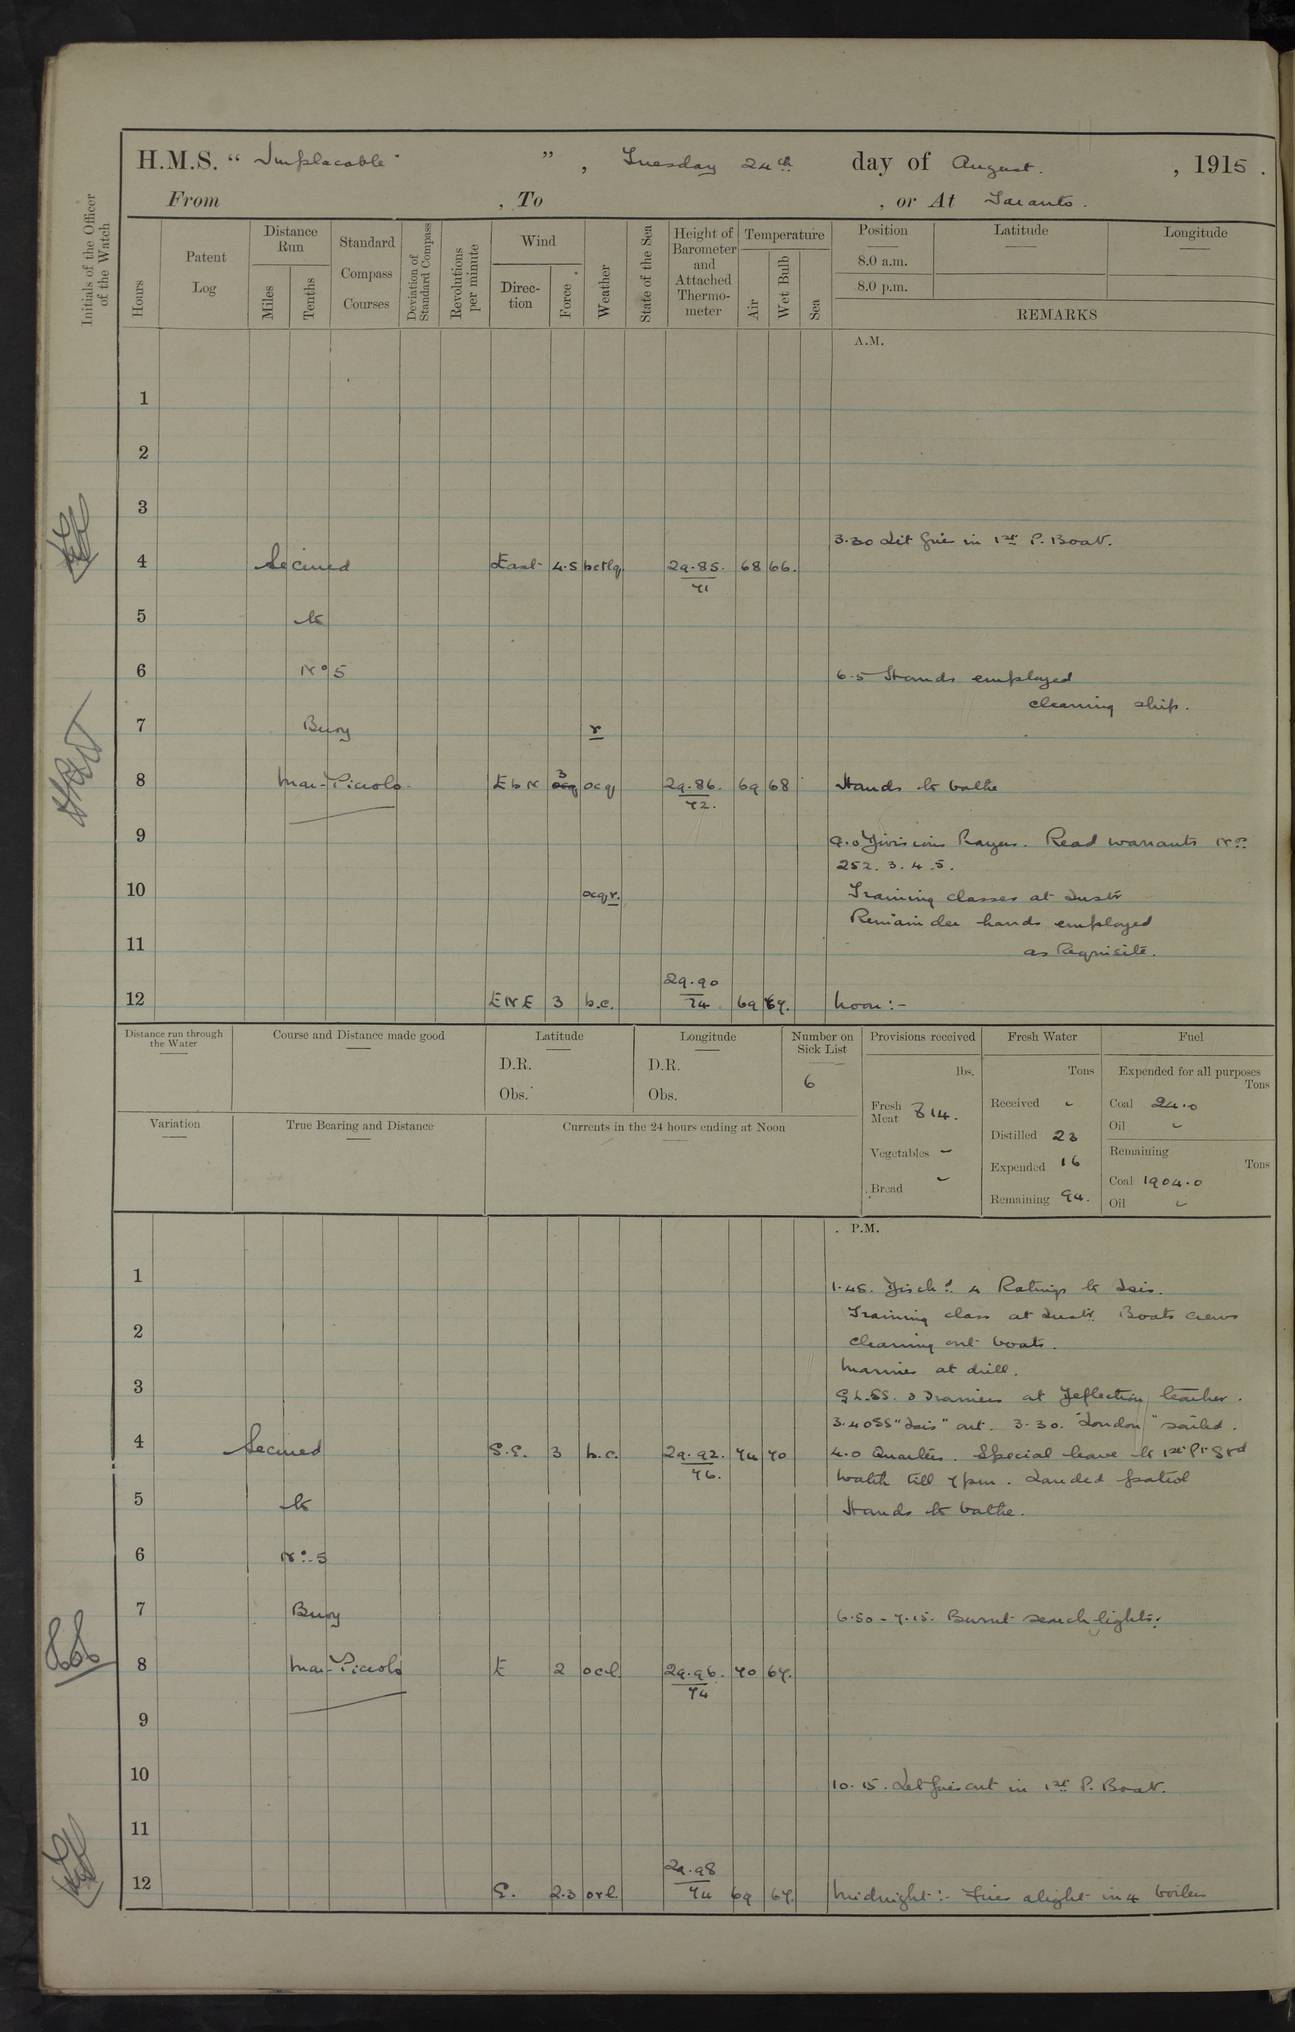 H.M.S. " Implacable " , Tuesday 24th day of August. , 1915.
From , To , or At Taranto.
Initials of the Officer of the Watch
Hours
Patent Log
Distance Run
Miles
Tenths
Standard Compass Courses
Deviation of Standard Compass
Revolutions per minute
Wind
Direction
Force
Weather
State of the Sea
Height of Barometer and Attached Thermometer
Temperature
Air
Wet Bulb
Sea
Position
8.0 a.m.
8.0 p.m.
Latitude
Longitude
REMARKS
A.M.
1
2
3
3.30 Lit fire in 1st P. Boat.
4 Secured East 4.5 29.85. 68 66.
71
5 to
6 No 5 6.5 Hands employed
cleaning ship.
7 Buoy r
8 Mar Piccolo E b N 3 ocq 29.86. 69 68 Hands to bathe
72.
9 9.0 Divisions Prayers. Read warrants Nos
252. 3. 4. 5.
10 ocqr. Training classes at Instr
Remainder hands employed
11 as Requisite.
12 ENE 3 b.c. 29.90 69 67. Noon:-
74
Distance run through the Water
Course and Distance made good
Latitude
D.R.
Obs.
Longitude
D.R.
Obs.
Number on Sick List
6
Provisions received
lbs.
Fresh Meat 814.
Vegetables -
Bread -
Fresh Water
Tons
Received -
Distilled 23
Expended 16
Remaining 94.
Fuel
Expended for all purposes
Tons
Coal 24.0
Oil -
Remaining
Tons
Coal 1904.0
Oil -
Variation
True Bearing and Distance
Currents in the 24 hours ending at Noon
P.M.
1 1.45. Dischd 4 Ratings to Isis.
Training class at Instr. Boats crews
2 cleaning out boats.
Marines at drill.
3 G.L.SS. & Trainers at Deflection teacher.
3.40 SS "Isis" out. 3.30. "London" sailed.
4 Secured S.E. 3 b.c. 29.92. 74 70 4.0 Quarters. Special leave to 1st Pt 3rd
76.
watch till 7pm. Landed patrol
5 to Hands to bathe.
6 No. 5
7 Buoy 6.50 - 7.15. Burnt search-lights.
8 Mar Piccolo E 2 ocl. 29.96. 70 67.
74
9
10 10.15. Let fires out in 1st P. Boat.
11
12 E. 2.3 orl. 29.98 69 67. Midnight:- Fires alight in 4 boilers
74